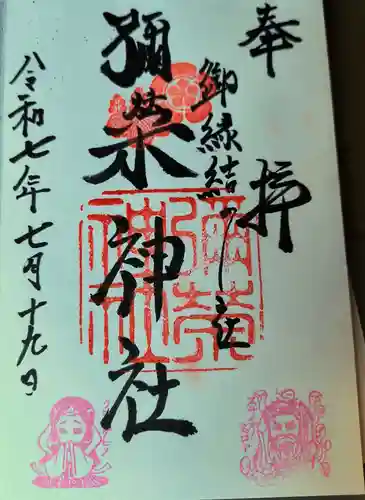 奉拝
御縁結びの社
彌栄神社
令和七年七月十九日
彌栄
神社